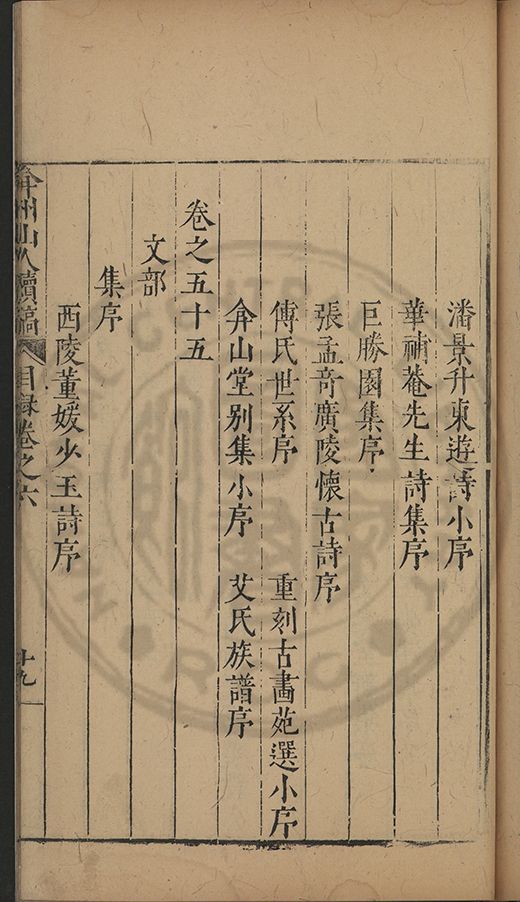 潘景升東遊詩小序
華補菴先生詩集序
巨勝園集序
張孟奇廣陵懷古詩序
傅氏世系序　重刻古畵苑選小序
弇山堂别集小序　艾氏族譜序
卷之五十五
文部
集序
西陵董媛少玉詩序
弇州山人續稿　目録卷之六　十九